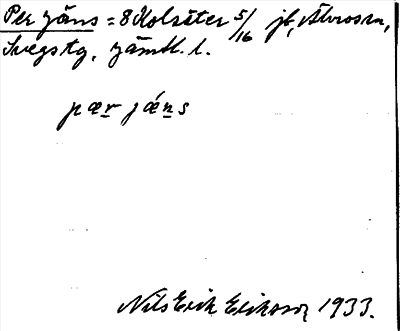 Per jäns = 8 Kolsäter 5/16 jb, Älvros sn,
Svegs tg, Jämtl. l.
pær jǽns
Nils Erik Eriksson 1933.